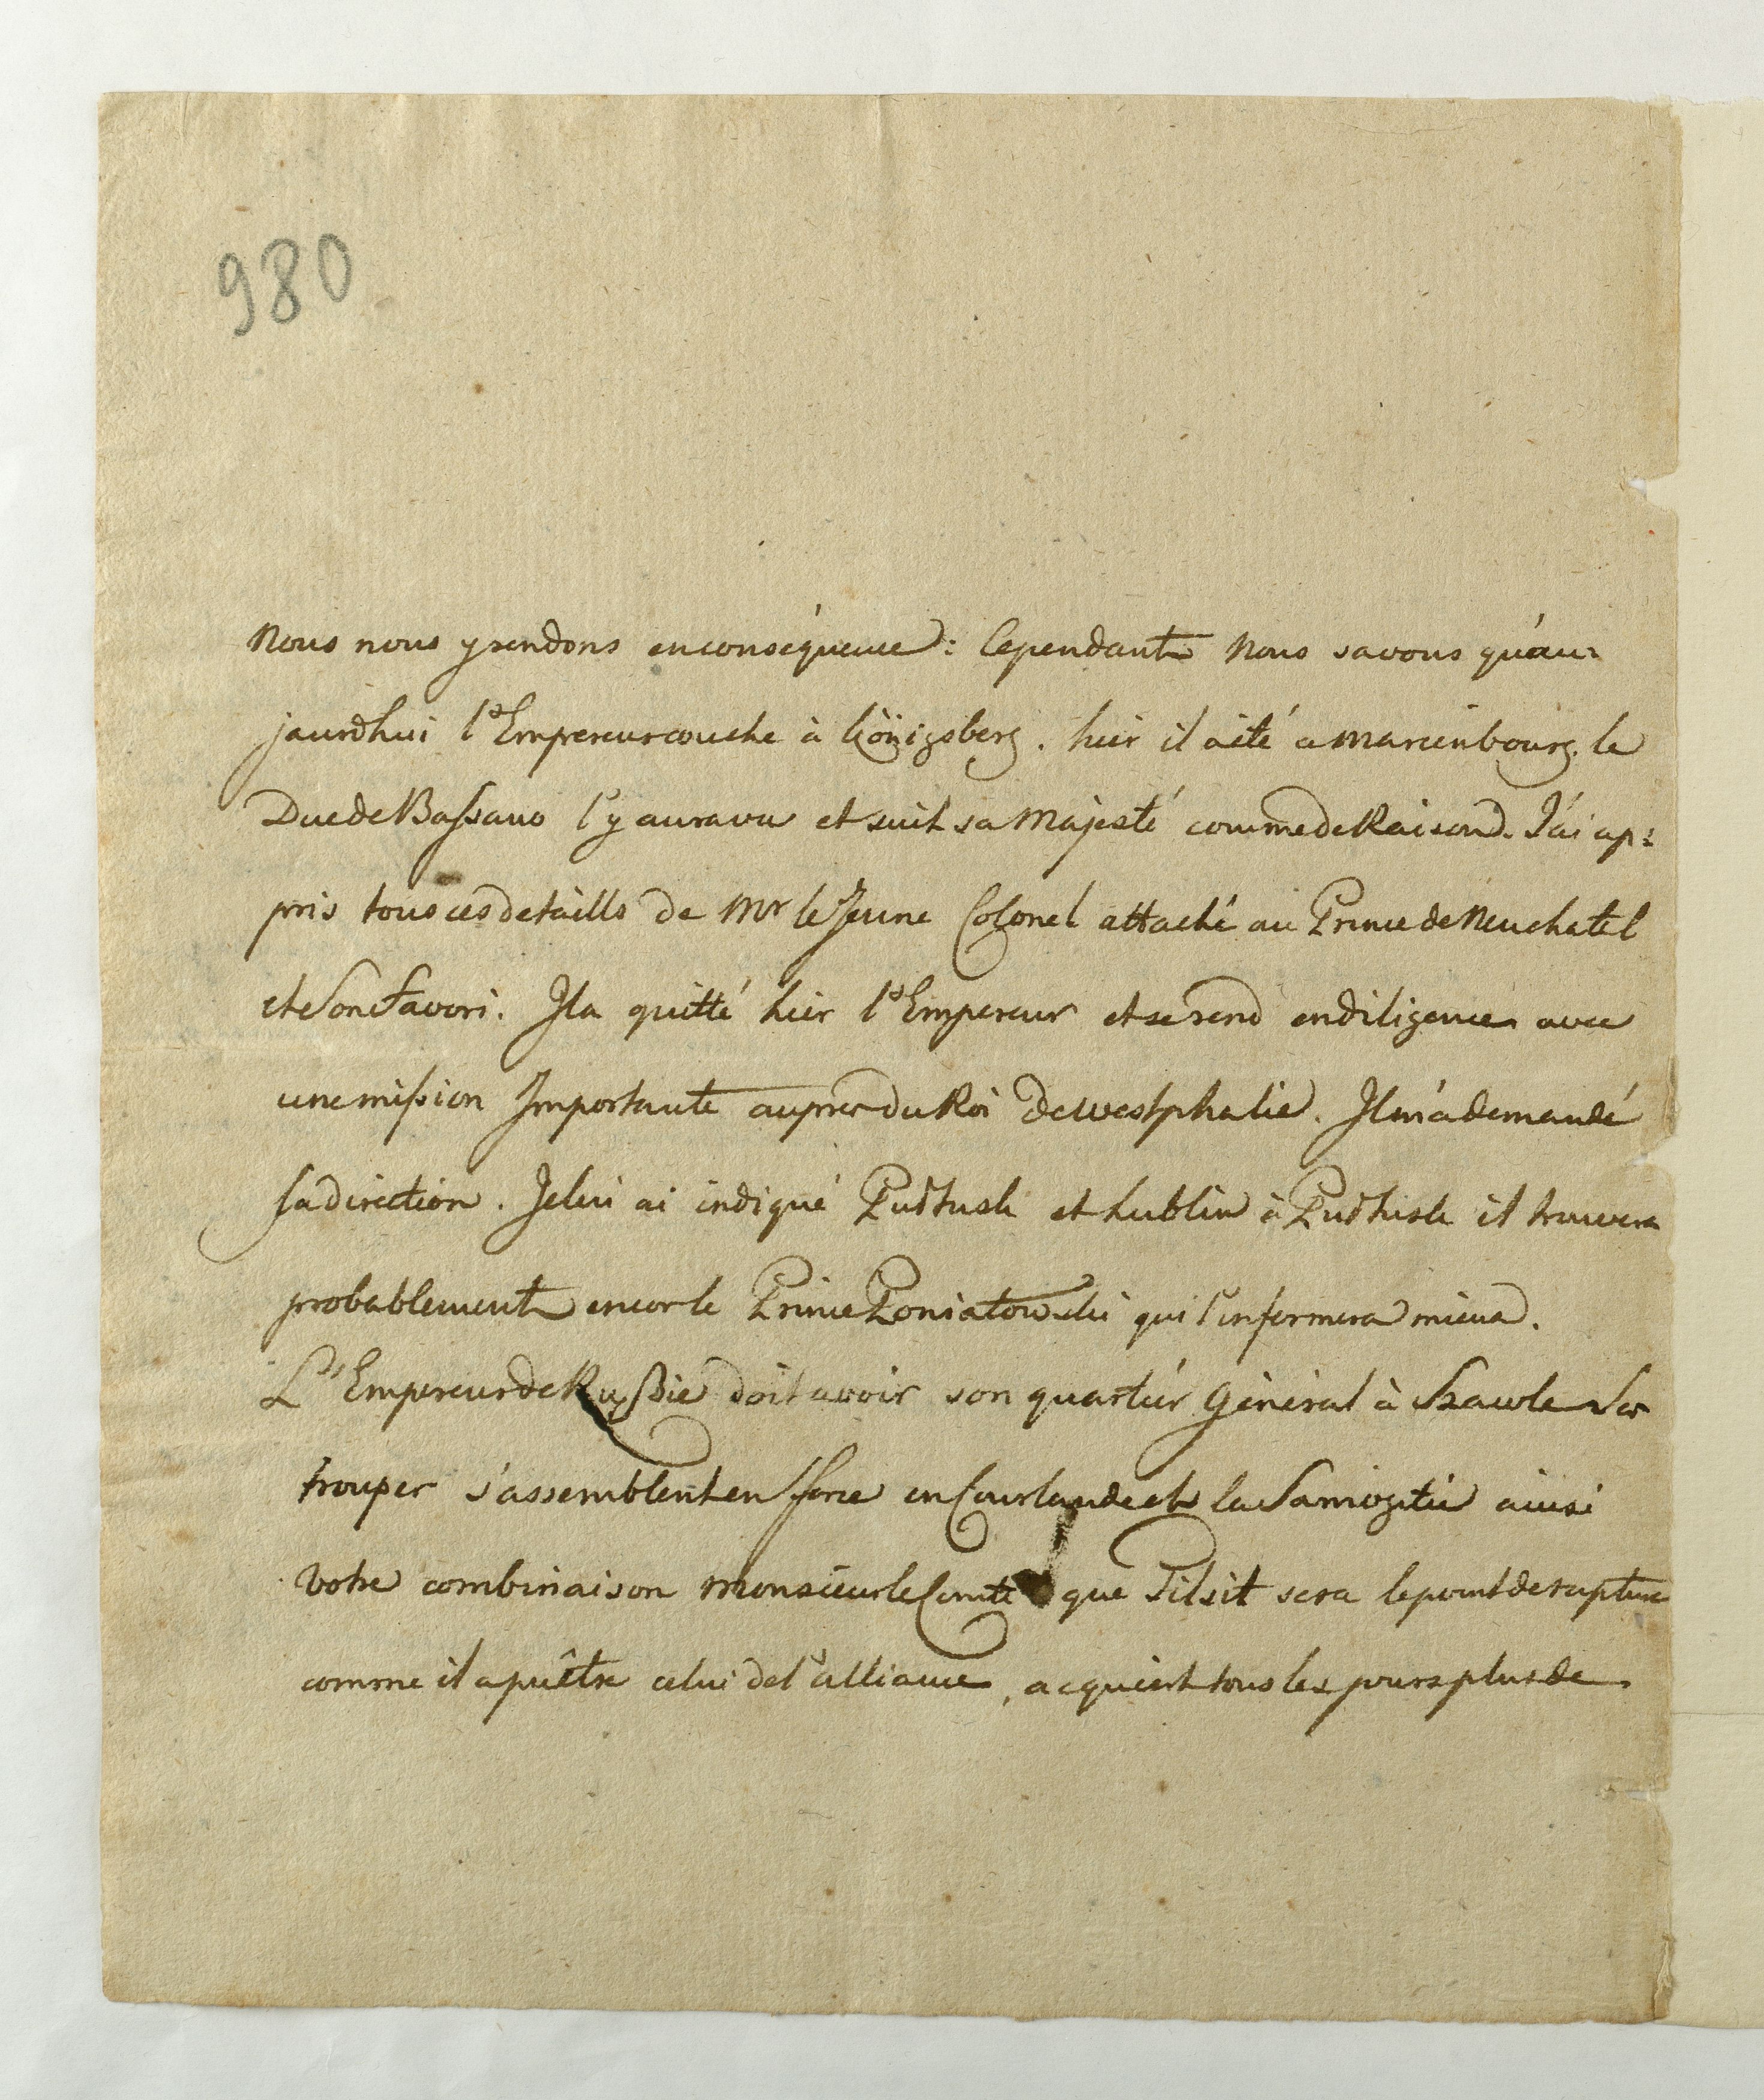 980
Nous nous y rendons en conséquence: Cependant Nous savons qu'au=
jaurdhui l'Empereur couche à Königsberg. hier il a été a Marienbourg. le
Duc de Bassano l'y aura vu et suit sa Majesté comme de Raison. J'ai ap=
pris tous ces detaills de Mr le Jeune Colonel attaché au Prince de Neuchatel
et Son Favori. Il a quitté hier l'Empereur et se rend en diligence avec
une mission Importante auprès du Roi de westphalie. Il m'a demandé
sa direction. Je lui ai indiqué Pudtusk et Lublin à Pudtusk il trouvera
probablement encor le Prince Poniatowski qui l'informera mieux.
L'Empereur de Russie doit avoir son quartier Général à Szawle Ses
troupes s'assemblent en force en Courlande et la Samogitie ainsi
Votre combinaison Monsieur le Comte que Tilsit sera le point de rupture
comme il a pu être celui de l'alliance, acquiert tous les jours plus de